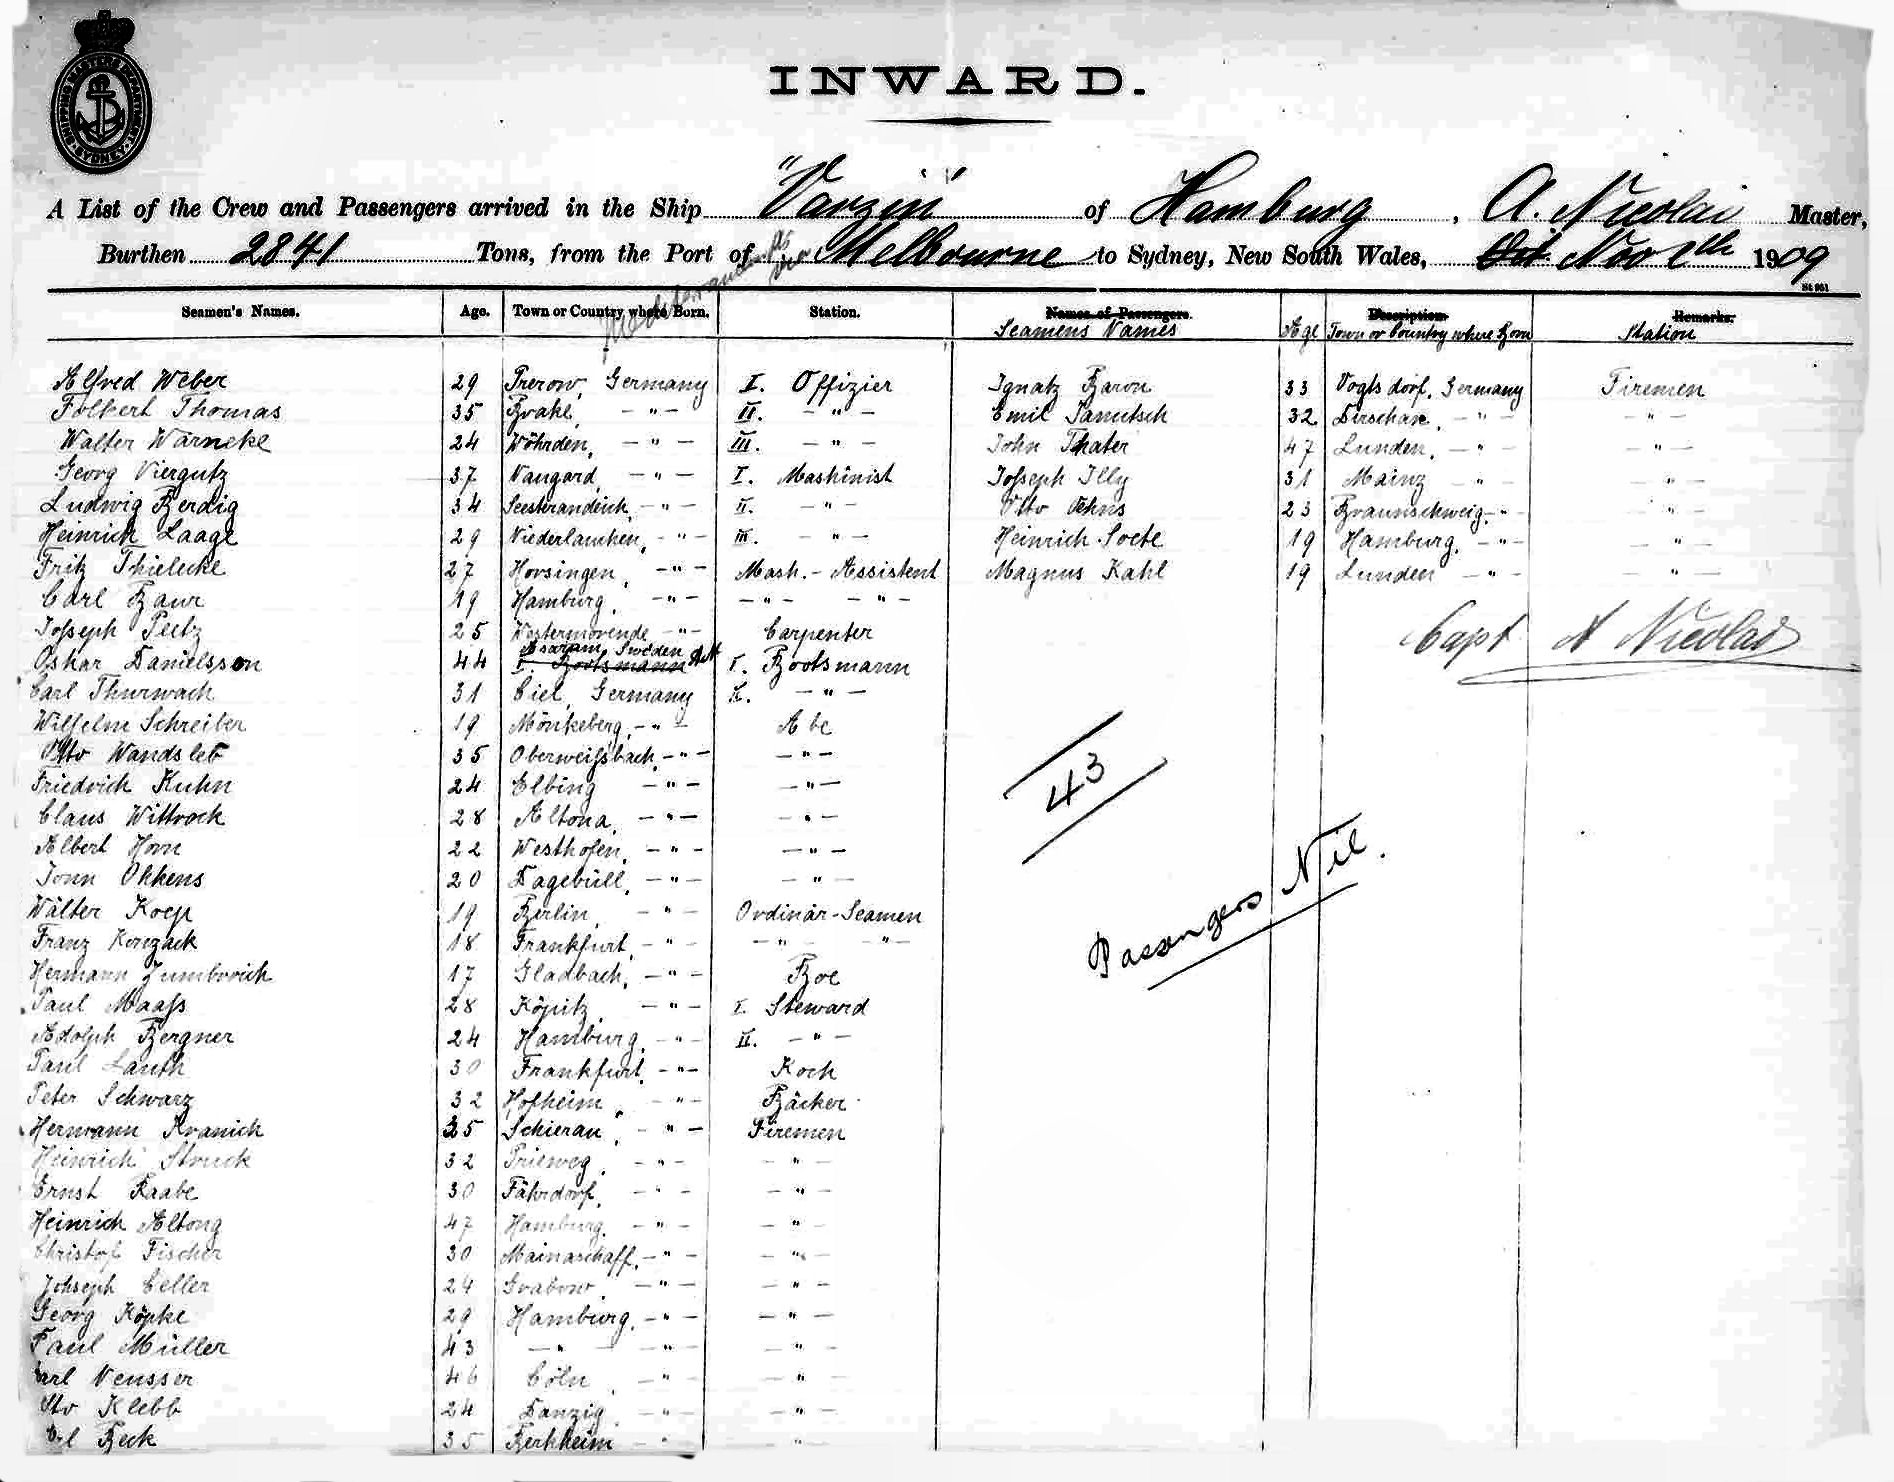 SHIPPING MASTERS DEPARTMENT
SYDNEY
INWARD.
A List of the Crew and Passengers arrived in the Ship "Varzin" of Hamburg, A. Nicolai Master,
Burthen 2841 Tons, from the Port of Melbourne to Sydney, New South Wales, Oct Nov 1909
Seamen's Names. Age. Town or Country where Born. Station. Names of Passengers. Description. Remarks.
Seamens Names Age Town or Country where Born Station
Alfred Weber 29 Prerow, Germany I. Offizier Ignatz Baron 33 Vogtsdorf, Germany Firemen
Folkert Thomas 35 Brake, — " — II. — " — Emil 32 Dirschau, — " — — " —
Walter Warneke 24 Wöhrden, — " — III. — " — John Thater 47 Lunden, — " — — " —
Georg Viergutz 37 Naugard — " — I. Maskinist Joseph Illy 31 Mainz — " — — " —
Ludwig Berdig 34 — " — II. — " — Otto Oehns 23 Braunschweig, — " — — " —
Heinrich Laage 29 — " — III. — " — Heinrich Soete 19 Hamburg, — " — — " —
Fritz Thielecke 27 Horsingen, — " — Mash. - Assistent Magnus Kahl 19 Lunden — " — — " —
Carl Baur 19 Hamburg, — " — — " — — " —
Joseph Peetz 25 — " — Carpenter Capt A Nicolai
Oskar Danielsson 44 Asaram, Sweden I. Bootsmann I. Bootsmann
Carl Thurwach 31 Ciel, Germany II. — " —
Wilhelm Schreiber 19 Mönkeberg, — " — A be
Otto Wandsleb 35 Oberweissbach, — " — — " —
43
Friedrich Kuhn 24 Elbing — " — — " —
Claus Wittrock 28 Altona, — " — — " —
Albert Horn 22 Westhofen, — " — — " —
Passengers Nil.
Jonn Okkens 20 Dagebüll, — " — — " —
Walter Koep 19 Berlin, — " — Ordinär-Seamen
Franz Konzack 18 Frankfurt, — " — — " — — " —
Hermann Zumbroich 17 Gladbach, — " — Boe
Paul Maass 28 Köpitz, — " — I. Steward
Adolph Bergner 24 Hamburg, — " — II. — " —
Paul Lauth 30 Frankfurt, — " — Koch
Peter Schwarz 32 Hofheim, — " — Bäcker
Hermann Kranich 25 Schierau, — " — Firemen
Heinrich Struck 32 — " — — " —
Ernst Raabe 30 Fährdorf, — " — — " —
Heinrich Altong 47 Hamburg, — " — — " —
Christof Fischer 30 Mainaschaff, — " — — " —
Johseph Celler 24 Grabow, — " — — " —
Georg Köpke 29 Hamburg, — " — — " —
Paul Müller 43 — " — — " — — " —
arl Neusser 46 Cöln, — " — — " —
tto Klebb 24 Danzig, — " — — " —
Beck 35 Berkheim — " — "